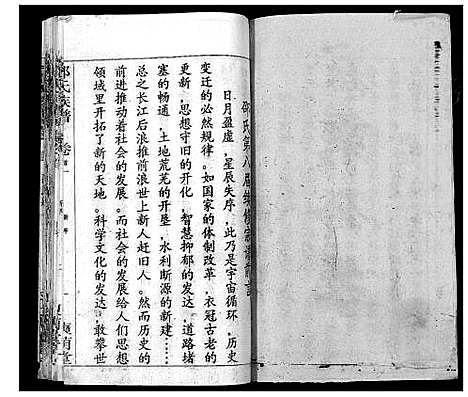 邵氏第八届续修宗谱前言
日月盈虚,星辰失序,此乃是宇宙循环,历史
变迁的必然规律。如国家的体制改革,衣冠古老的
更新,思想守旧的开化,智慧抑郁的发达,道路堵
塞的畅通,土地荒芜的开垦,水利断源的新建……
总之长江后浪推前浪世上新人赶旧人。然而历史的
前进推动着社会的发展。而社会的发展给人们思想
领域里开拓了新的天地。科学文化的发达,敢攀世
邵氏宗谱 卷首一